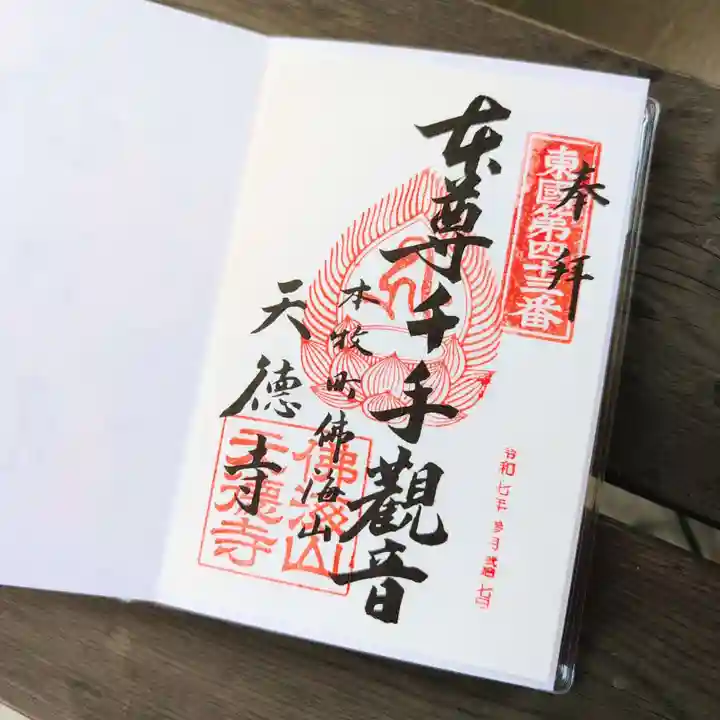 奉拝
東國第四十三番
本尊千手觀音
本牧町佛海山
天德寺
佛海山
天德寺
令和七年参月弐拾七日